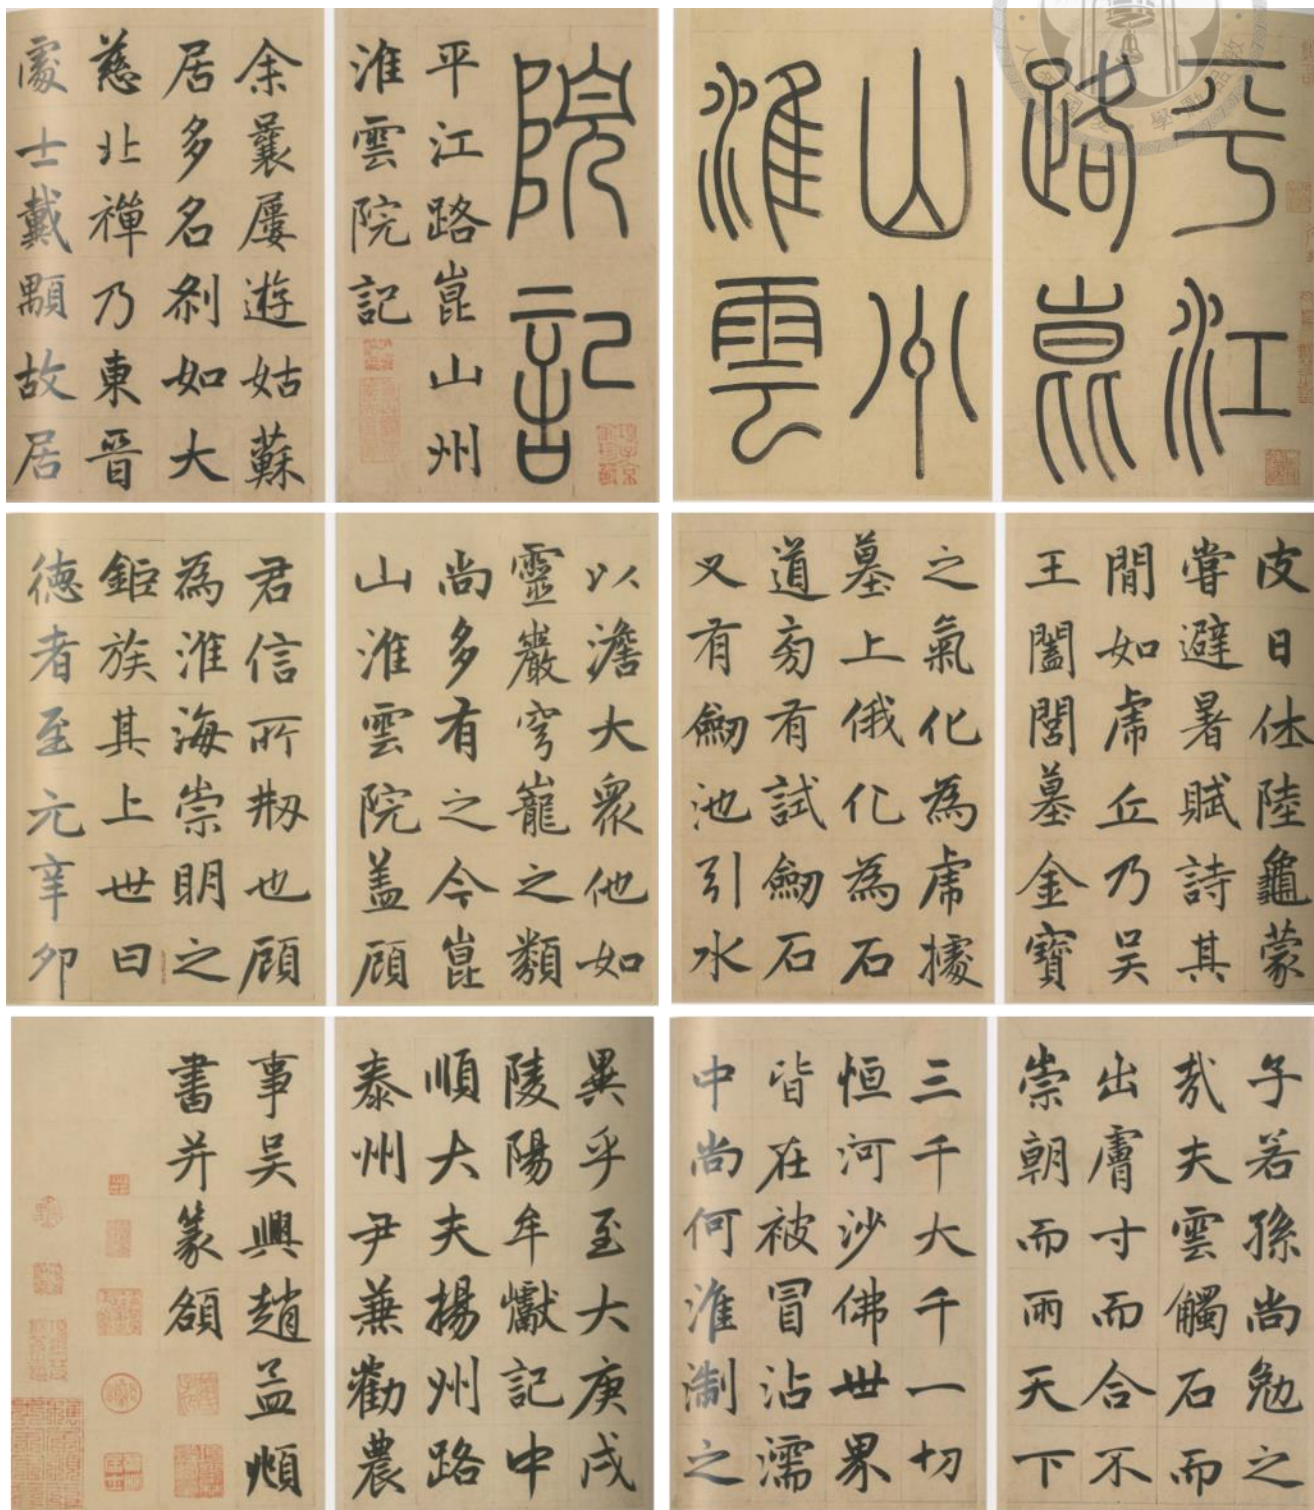 平江
路崑
山州
淮雲
院記
平江路崑山州
淮雲院記
余曩屢遊姑蘇
居多名刹如大
慈北禪乃東晉
處士戴顒故居
皮日休陸龜蒙
嘗避暑賦詩其
間如虎丘乃吳
王闔閭墓金寶
之氣化為虎據
墓上俄化為石
道旁有試劒石
又有劒池引水
以澹大衆他如
靈巖穹窿之類
尚多有之今崑
山淮雲院盖顧
君信所剏也顧
為淮海崇明之
鉅族其上世曰
德者至元辛卯
子若孫尚勉之
哉夫雲觸石而
出膚寸而合不
崇朝而雨天下
三千大千一切
恒河沙佛世界
皆在被冒沾濡
中尚何淮淛之
異乎至大庚戌
陵陽牟巘記中
順大夫揚州路
泰州尹兼勸農
事吳興趙孟頫
書并篆額